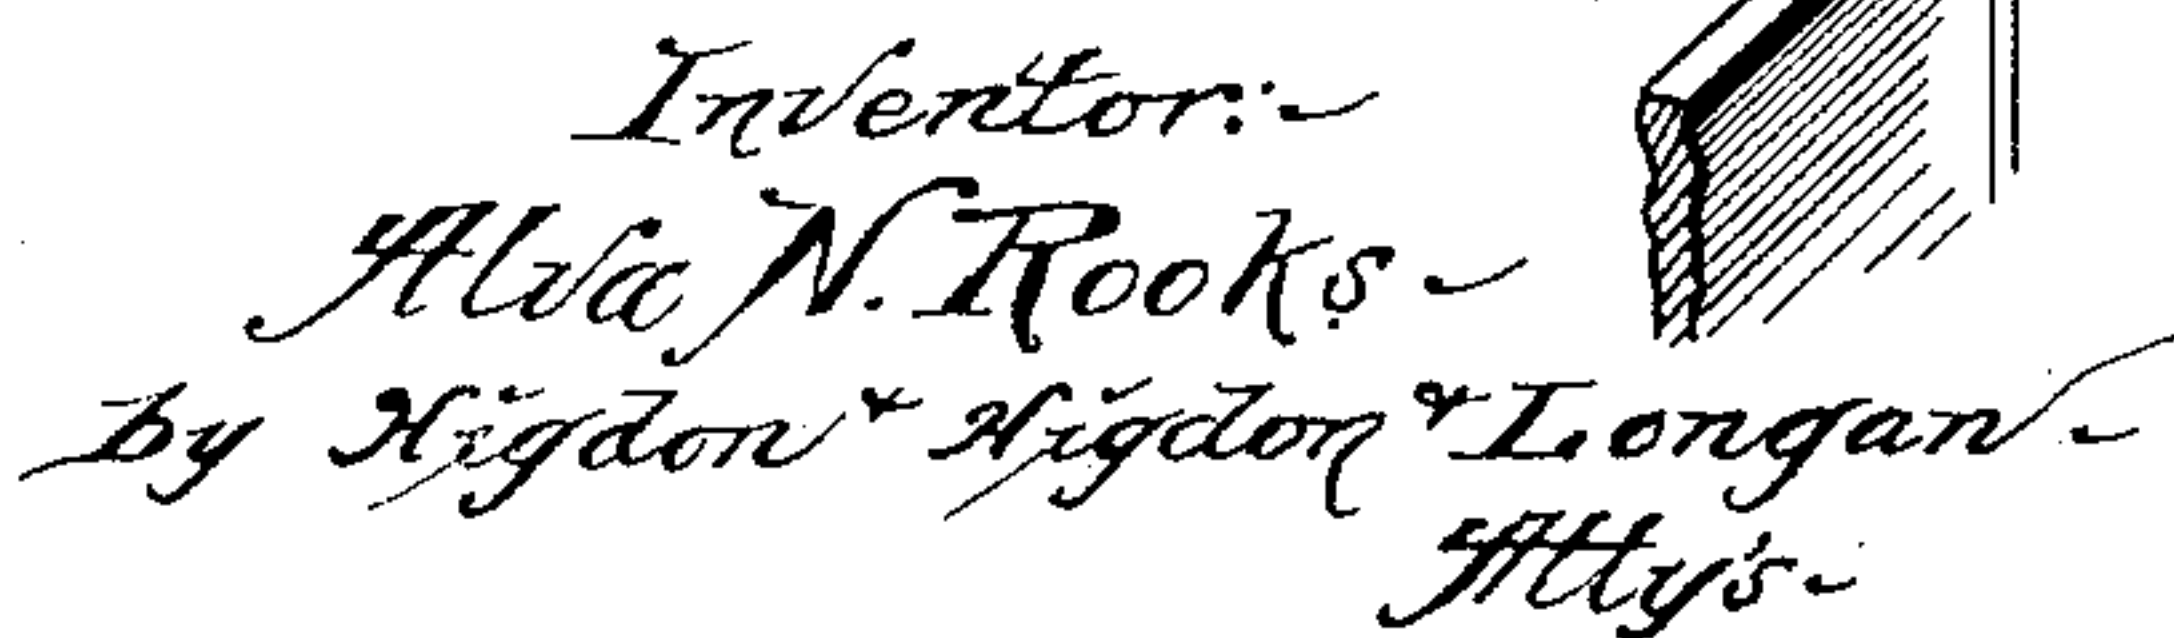 Inventor:-
Alva N. Rooks-
by Higdon & Higdon & Longan-
Att'ys-